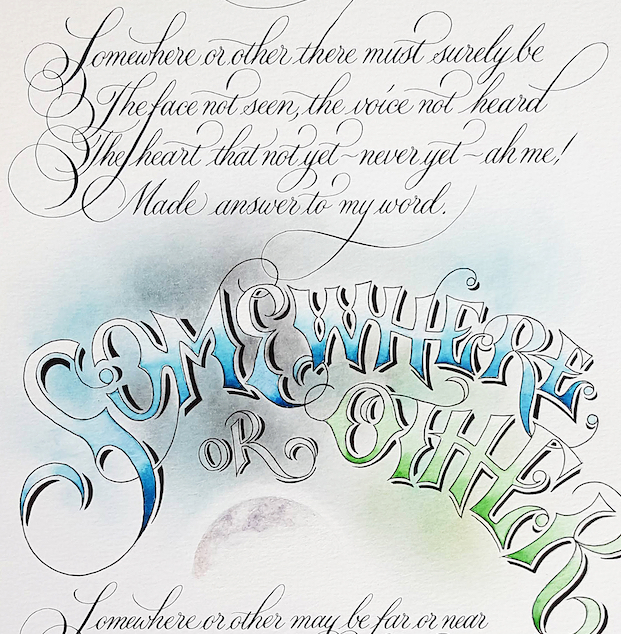 Somewhere or other there must surely be
The face not seen, the voice not heard
The heart that not yet ~ never yet ~ ah me!
Made answer to my word.
SOMEWHERE
OR OTHER
Somewhere or other may be far or near